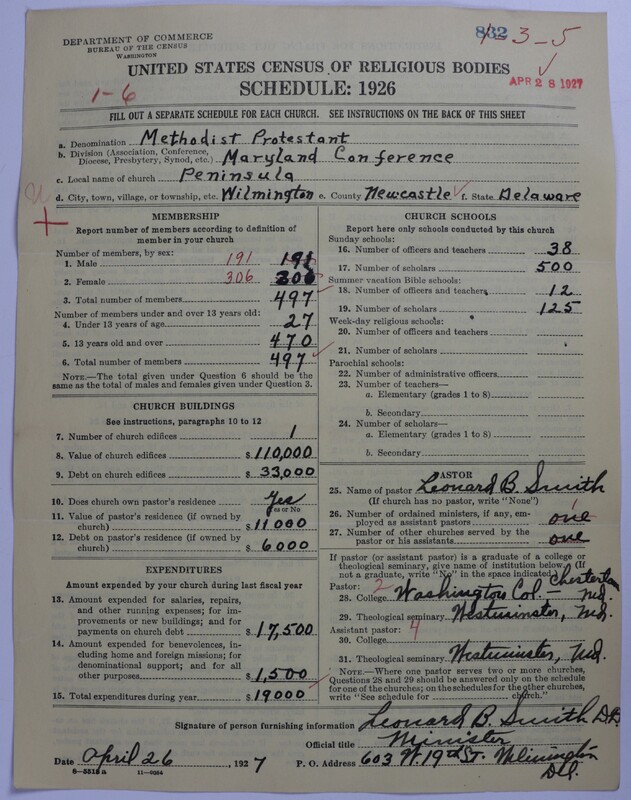 DEPARTMENT OF COMMERCE
BUREAU OF THE CENSUS
WASHINGTON
832 1-3-5
APR 28 1927
1-6
UNITED STATES CENSUS OF RELIGIOUS BODIES
SCHEDULE: 1926
FILL OUT A SEPARATE SCHEDULE FOR EACH CHURCH. SEE INSTRUCTIONS ON THE BACK OF THIS SHEET
a. Denomination Methodist Protestant
b. Division (Association, Conference, Diocese, Presbytery, Synod, etc.) Maryland Conference
c. Local name of church Peninsula
d. City, town, village, or township, etc. Wilmington e. County Newcastle f. State Delaware
MEMBERSHIP
Report number of members according to definition of
member in your church
Number of members, by sex:
1. Male 191 191
2. Female 306 306
3. Total number of members 497
Number of members under and over 13 years old:
4. Under 13 years of age 27
5. 13 years old and over 470
6. Total number of members 497
NOTE.—The total given under Question 6 should be
same as the total of males and females given under Question 3.
CHURCH BUILDINGS
See instructions, paragraphs 10 to 12
7. Number of church edifices 1
8. Value of church edifices $ 110,000
9. Debt on church edifices $ 33,000
10. Does church own pastor's residence Yes
Yes or No
11. Value of pastor's residence (if owned by
church) $ 11000
12. Debt on pastor's residence (if owned by
church) $ 6000
EXPENDITURES
Amount expended by your church during last fiscal year
13. Amount expended for salaries, repairs,
and other running expenses; for im-
provements or new buildings; and for
payments on church debt $ 17,500
14. Amount expended for benevolences, in-
cluding home and foreign missions; for
denominational support; and for all
other purposes $ 1,500
15. Total expenditures during year $ 19000
CHURCH SCHOOLS
Report here only schools conducted by this church
Sunday schools:
16. Number of officers and teachers 38
17. Number of scholars 500
Summer vacation Bible schools:
18. Number of officers and teachers 12
19. Number of scholars 125
Week-day religious schools:
20. Number of officers and teachers
21. Number of scholars
Parochial schools:
22. Number of administrative officers
23. Number of teachers—
a. Elementary (grades 1 to 8)
b. Secondary
24. Number of scholars—
a. Elementary (grades 1 to 8)
b. Secondary
PASTOR
25. Name of pastor Leonard B. Smith
(If church has no pastor, write "None")
26. Number of ordained ministers, if any, em-
ployed as assistant pastors one
27. Number of other churches served by the
pastor or his assistants one
If pastor (or assistant pastor) is a graduate of a college or
theological seminary, give name of institution below. (If
not a graduate, write "No" in the space indicated)
Pastor: 2
28. College Washington Col. - Chestertown Md.
29. Theological seminary Westminster, Md.
Assistant pastor: 4
30. College
31. Theological seminary Westminster, Md.
NOTE.—Where one pastor serves two or more churches,
Questions 28 and 29 should be answered only on the schedule
for one of the churches; on the schedules for the other churches,
write "See schedule for church."
Signature of person furnishing information Leonard B. Smith D.D.
Official title Minister
Date April 26, 1927 P. O. Address 603 W. 19th St. Wilmington Del.
8-5518a 11-9334